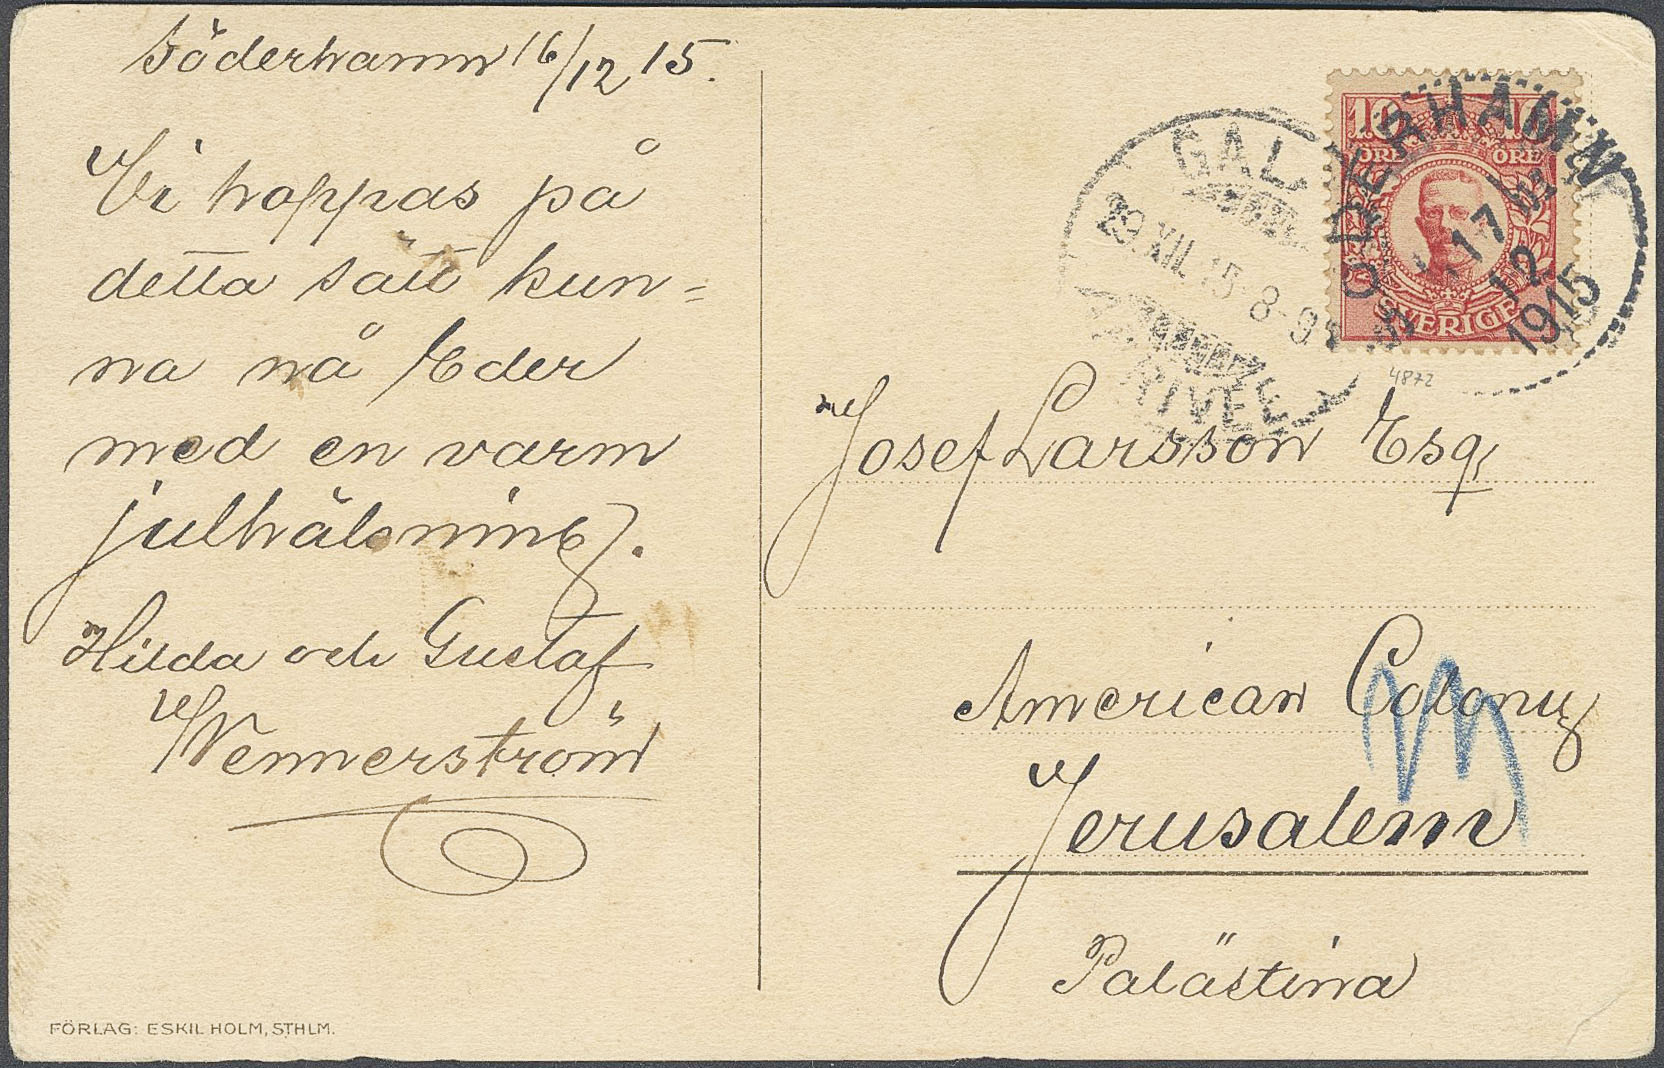 Söderhamn 16/12 15.
Vi hoppas på
detta sätt kun=
na nå Eder
med en varm
julhälsning.
Hilda och Gustaf
Wennerström
FÖRLAG: ESKIL HOLM, STHLM.
GAL
29.XII.15 8-9
10 10
ÖRE ÖRE
SVERIGE
ÖDERHAMN
17
12
1915
4872
Josef Larsson Esq.
American Colony
Jerusalem
Palästina